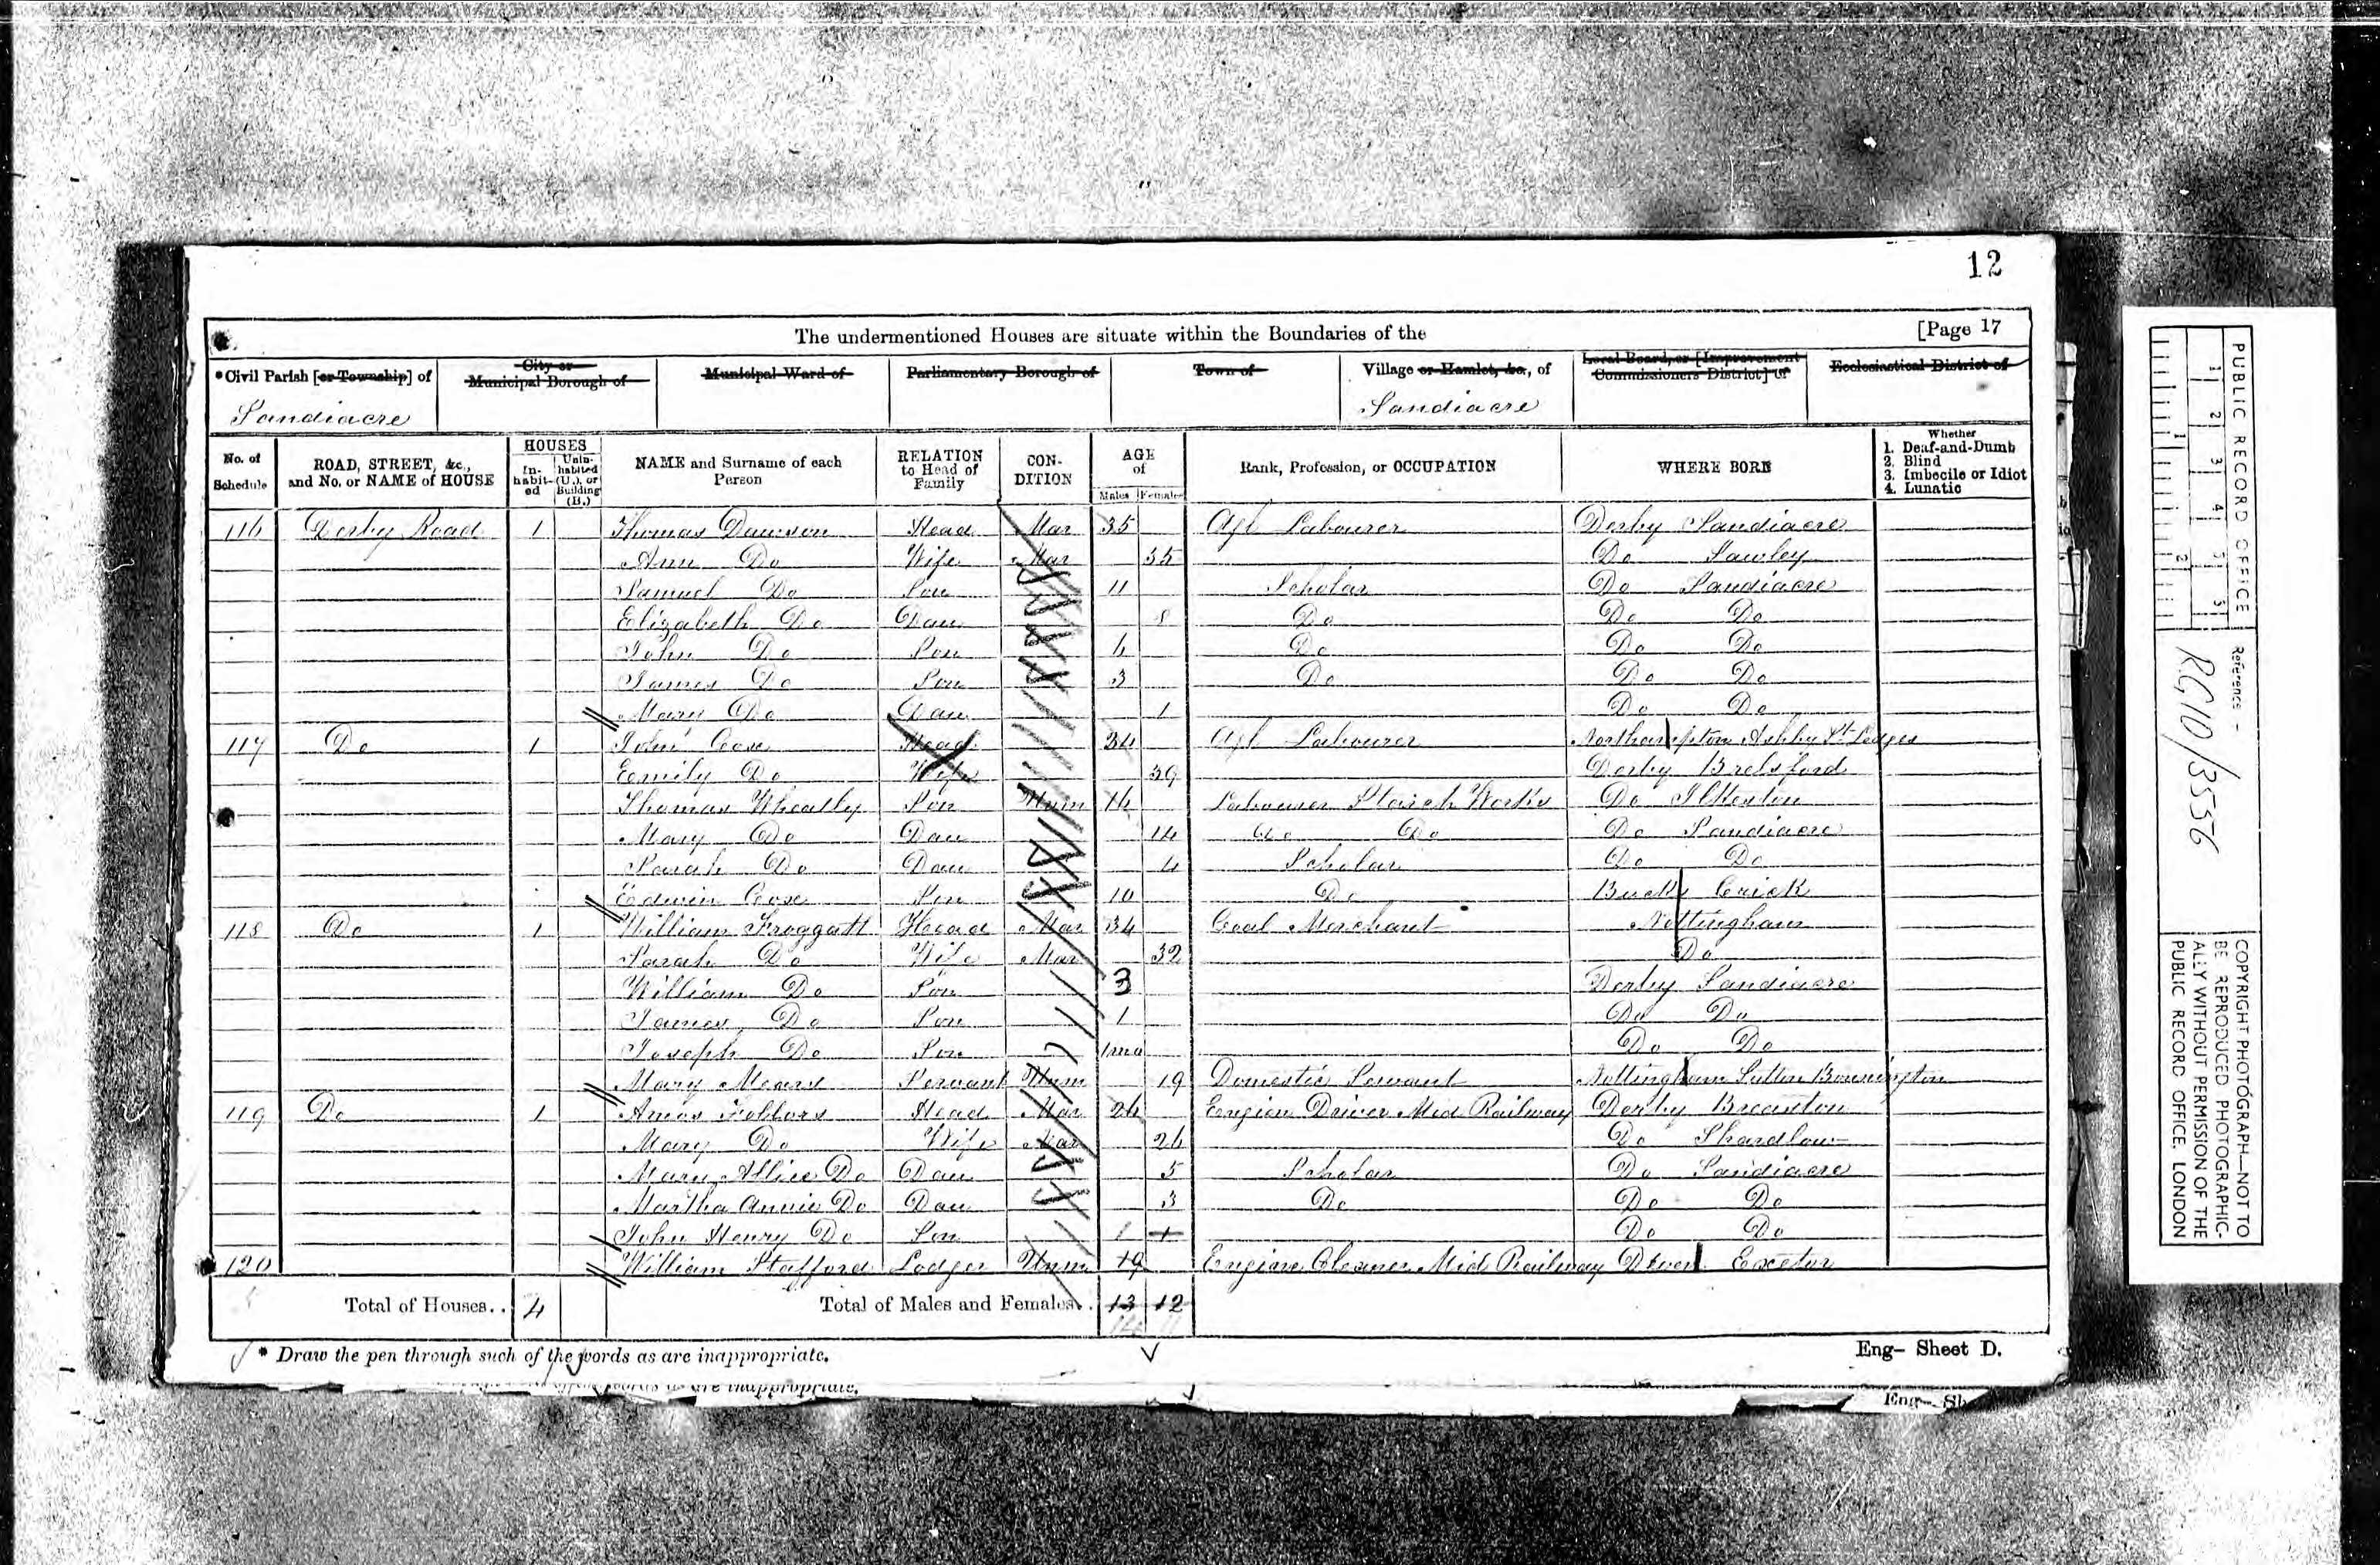 12
The undermentioned Houses are situate within the Boundaries of the [Page 17
*Civil Parish [or Township] of
City or Municipal Borough of
Municipal Ward of
Parliamentary Borough of
Town of
Village or Hamlet, &c., of
Local Board, or [Improvement Commissioners District] of
Ecclesiastical District of
Sandiacre Sandiacre
No. of Schedule
ROAD, STREET, &c., and No. or NAME of HOUSE
HOUSES
In-habit-ed
Unin-habited (U.), or Building (B.)
NAME and Surname of each Person
RELATION to Head of Family
CON-DITION
AGE of
Males Females
Rank, Profession, or OCCUPATION
WHERE BORN
Whether
1. Deaf-and-Dumb
2. Blind
3. Imbecile or Idiot
4. Lunatic
116 Derby Road 1 Thomas Dawson Head Mar 35 Agl Labourer Derby Sandiacre
Ann Do Wife Mar 35 Do Sawley
Samuel Do Son 11 Scholar Do Sandiacre
Elizabeth Do Dau 8 Do Do Do
John Do Son 6 Do Do Do
James Do Son 3 Do Do Do
Mary Do Dau 1 Do Do
117 Do 1 John Cose Head 34 Agl Labourer Northampton Ashby St Ledges
Emily Do Wife 39 Derby Brelsford
Thomas Wheatly Son Unm 16 Labourer Starch Works Do Ilkeston
Mary Do Dau 14 Do Do Do Sandiacre
Sarah Do Dau 4 Scholar Do Do
Edwin Cose Son 10 Do Bucks Crick
118 Do 1 William Froggatt Head Mar 34 Coal Merchant Nottingham
Sarah Do Wife Mar 32 Do
William Do Son 3 Derby Sandiacre
James Do Son 1 Do Do
Joseph Do Son 1mo Do Do
Mary Mears Servant Unm 19 Domestic Servant Nottingham Sutton Bonnington
119 Do 1 Amos Head Mar 26 Engien Driver Mid Railway Derby Breaston
Mary Do Wife Mar 26 Do Shardlow
Mary Allice Do Dau 5 Scholar Do Sandiacre
Martha Annie Do Dau 3 Do Do Do
John Henry Do Son 1 1 Do Do
120 William Stafford Lodger Unm 19 Engine Cleaner Mid Railway Devon Exeter
Total of Houses.. 4 Total of Males and Females.. 13 12
14 11
* Draw the pen through such of the words as are inappropriate.
Eng- Sheet D.
words as are inappropriate.
Eng- Sh
PUBLIC RECORD OFFICE
1 2 3 4 5
1 2
Reference -
RG10/3556
COPYRIGHT PHOTOGRAPH—NOT TO
BE REPRODUCED PHOTOGRAPHIC-
ALLY WITHOUT PERMISSION OF THE
PUBLIC RECORD OFFICE, LONDON